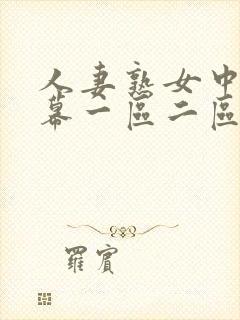 人妻熟女中
幕一區二區
羅賓